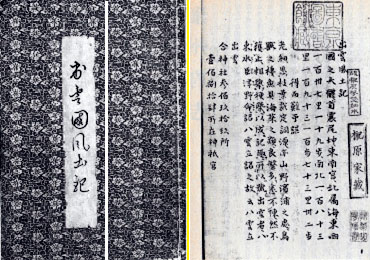 出雲國風土記
出雲風土記
國之大體首震尾坤東南宮北属海東西
一百卅七里一十九步南北一百八十三
里一百九十三步
七十三里卅二步
得而難可誤
老細思枝葉裁定詞源亦山野濱浦之處鳥
獸之棲魚貝海菜之類良繁多悉不陳然不
獲止粗擧梗概以成記趣所以號出雲者八
束水臣津野命詔八雲立詔之故云八雲立
出雲
合神社參佰玖拾玖所
壹佰捌拾肆所在神祇官
榊原家藏